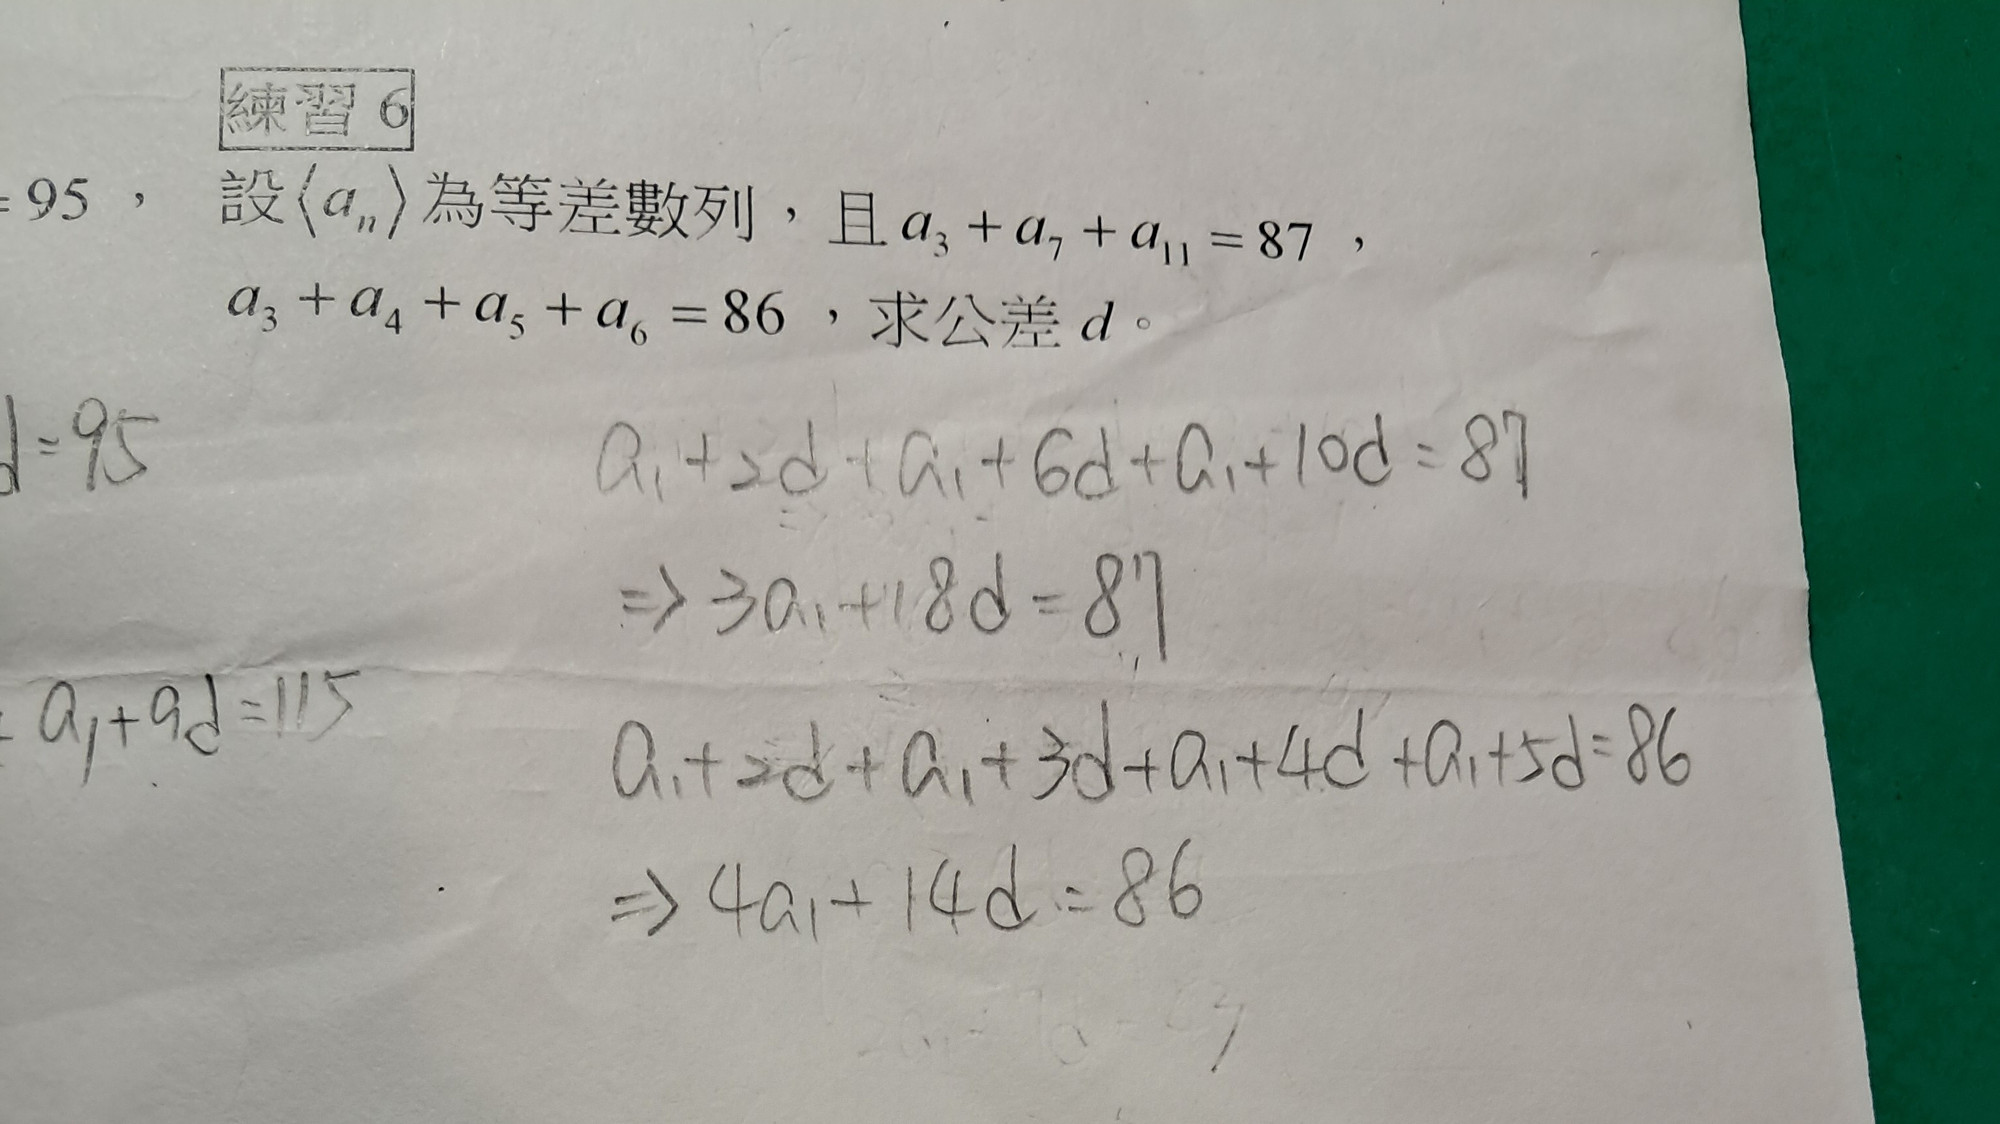 練習 6
=95,
設⟨aₙ⟩為等差數列,且 a₃ + a₇ + a₁₁ = 87,
a₃ + a₄ + a₅ + a₆ = 86,求公差 d。
d=95
a₁+2d+a₁+6d+a₁+10d=87
⇒3a₁+18d=87
a₁+9d=115
a₁+2d+a₁+3d+a₁+4d+a₁+5d=86
⇒4a₁+14d=86